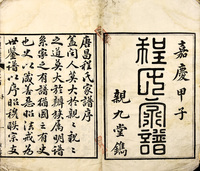 嘉慶甲子
程氏家譜
親九堂鐫
唐昌程氏家譜序
蓋聞人莫大於親親親
之道莫大於辨族屬明譜
系家之有譜猶國之有史
也史以
世鑒譜以序昭穆聯宗支